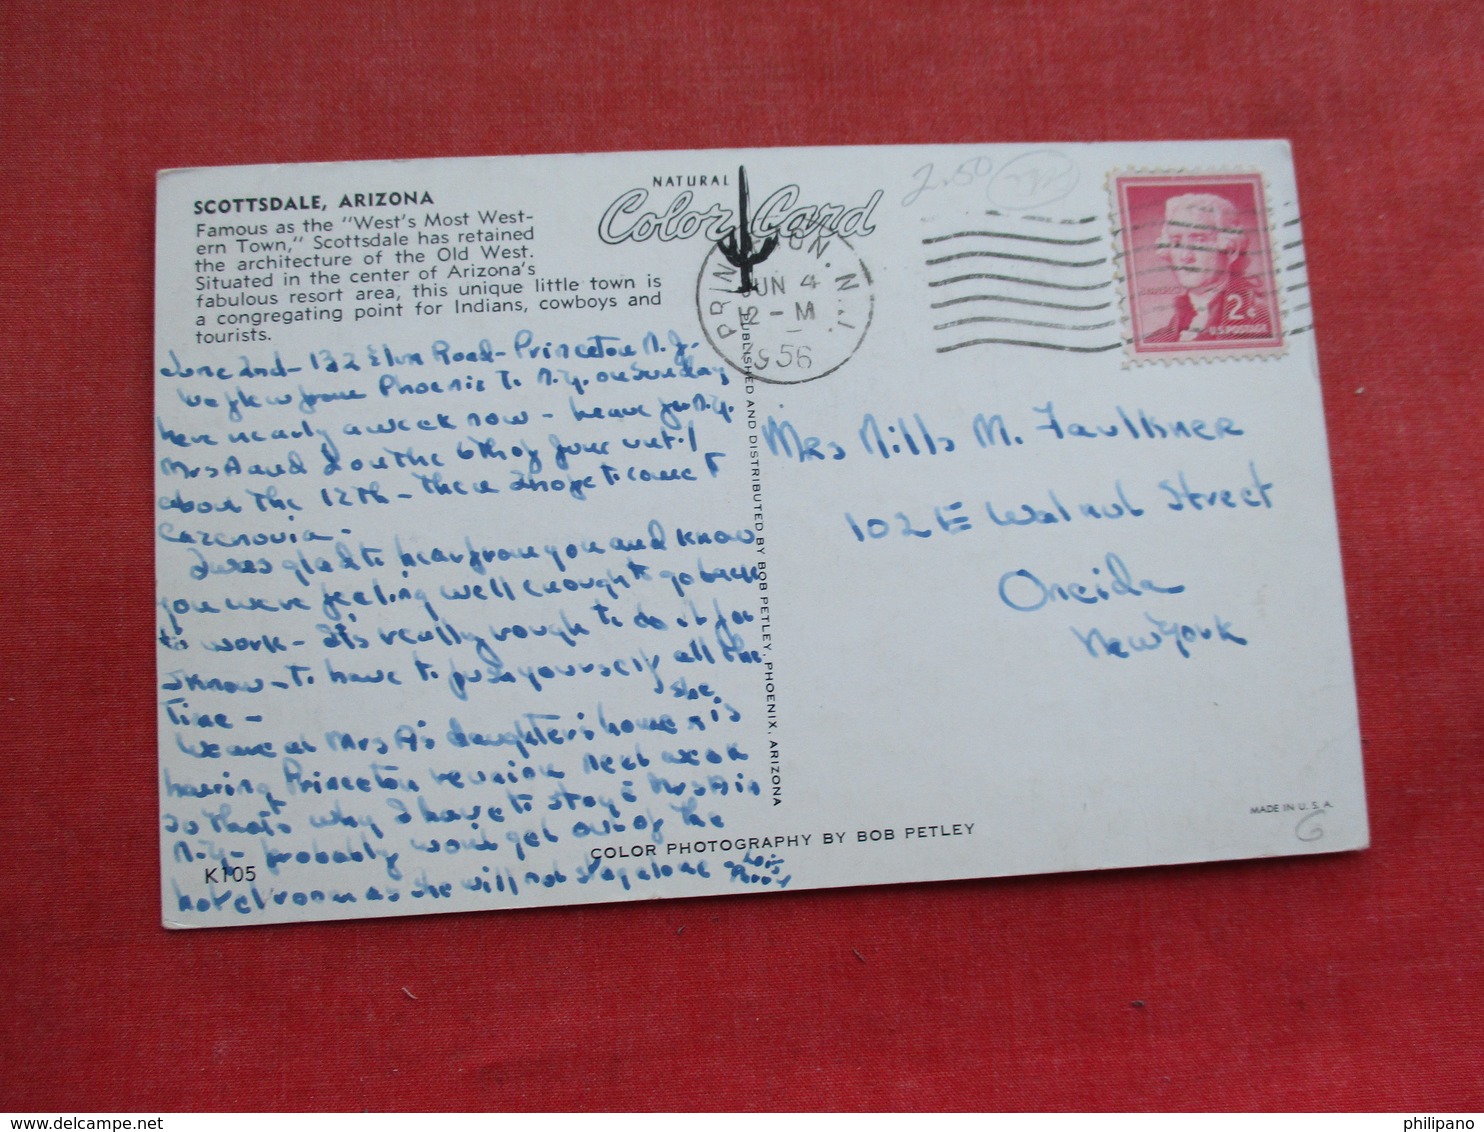 SCOTTSDALE, ARIZONA
Famous as the "West's Most West-
ern Town," Scottsdale has retained
the architecture of the Old West.
Situated in the center of Arizona's
fabulous resort area, this unique little town is
a congregating point for Indians, cowboys and
tourists.
June 2nd - 132 Elm Road - Princeton N.J.
We flew from Phoenix To N.Y. on Sunday
here nearly a week now - leave for N.Y.
Mrs A and I on the 6th of June until
about the 12th - then I hope to come to
Cazenovia -
I was glad to hear from you and know
you were feeling well enough to go back
to work - It's really rough to do it for
I know - to have to push yourself all the
Time -
We are at Mrs A's daughter's home & she is
having Princeton reunion next week
so that's why I have to stay c̄ Mrs A in
N.Y. - probably won't get out of the
hotel room as she will not stay alone -
Lois
NATURAL
Color Card
PRINCETON. N.J.
JUN 4
12 - M
1956
2.50
2¢
U.S. POSTAGE
PUBLISHED AND DISTRIBUTED BY BOB PETLEY, PHOENIX, ARIZONA
Mrs Mills M. Faulkner
102 E Walnut Street
Oneida
New York
MADE IN U. S. A.
6
COLOR PHOTOGRAPHY BY BOB PETLEY
K105
philipano